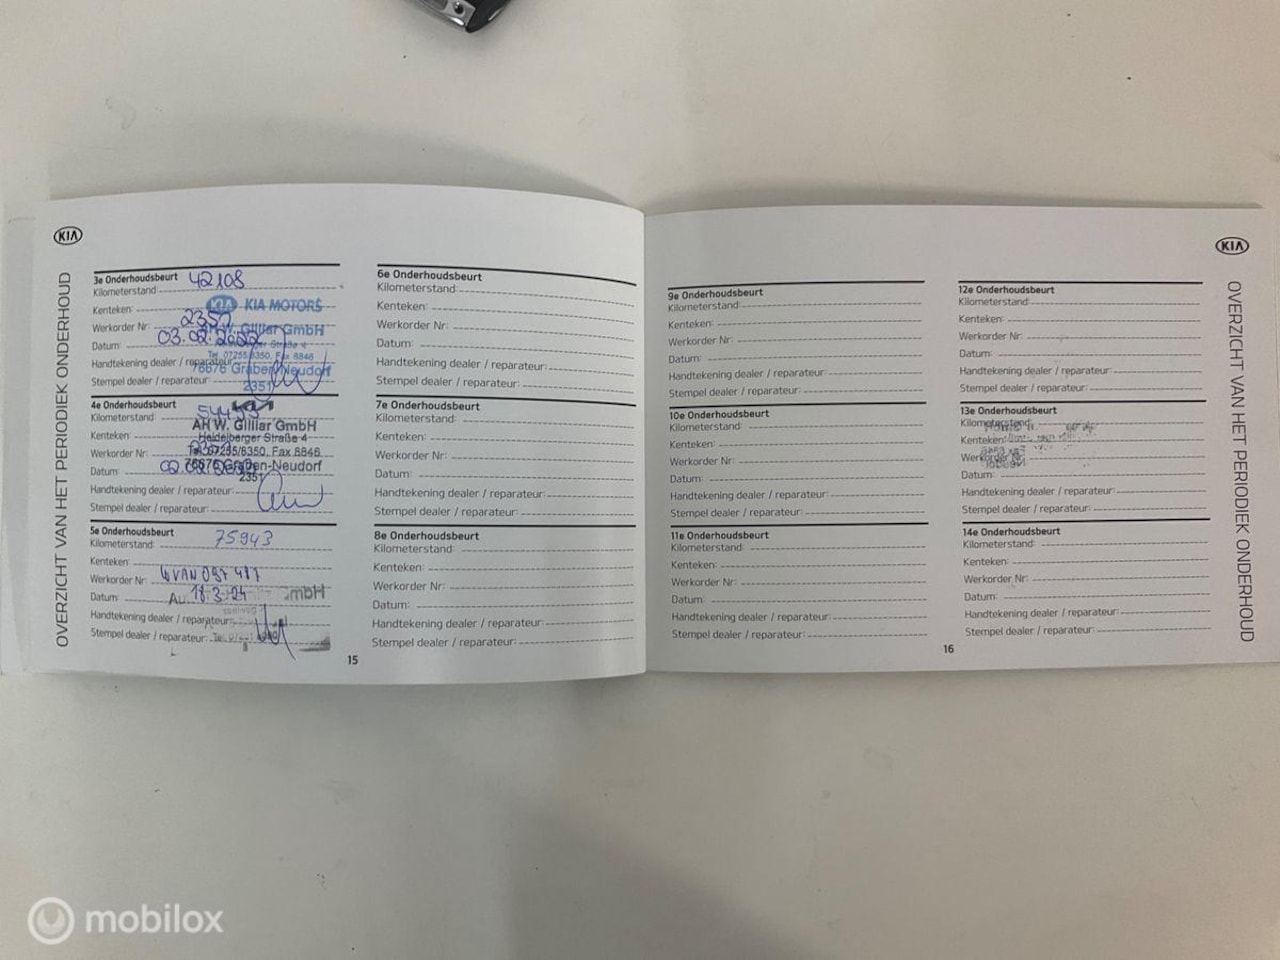 KIA
OVERZICHT VAN HET PERIODIEK ONDERHOUD
3e Onderhoudsbeurt
Kilometerstand: 42108
KIA KIA MOTORS
Kenteken:
Werkorder Nr: 2351
AH W. Gilliar GmbH
Datum: 03.02.2022
Straße 4
Tel. 07255/6350, Fax 8846
Handtekening dealer / reparateur:
76676 Graben-Neudorf
Stempel dealer / reparateur:
2351
4e Onderhoudsbeurt
Kilometerstand:
AH W. Gilliar GmbH
Kenteken:
Heidelberger Straße 4
Werkorder Nr:
Tel. 07255/6350, Fax 8846
Datum:
76676 Graben-Neudorf
2351
Handtekening dealer / reparateur:
Stempel dealer / reparateur:
5e Onderhoudsbeurt
Kilometerstand: 75943
Kenteken:
Werkorder Nr:
Datum: 18.3.24
Handtekening dealer / reparateur:
Stempel dealer / reparateur:
6e Onderhoudsbeurt
Kilometerstand:
Kenteken:
Werkorder Nr:
Datum:
Handtekening dealer / reparateur:
Stempel dealer / reparateur:
7e Onderhoudsbeurt
Kilometerstand:
Kenteken:
Werkorder Nr:
Datum:
Handtekening dealer / reparateur:
Stempel dealer / reparateur:
8e Onderhoudsbeurt
Kilometerstand:
Kenteken:
Werkorder Nr:
Datum:
Handtekening dealer / reparateur:
Stempel dealer / reparateur:
15
9e Onderhoudsbeurt
Kilometerstand:
Kenteken:
Werkorder Nr:
Datum:
Handtekening dealer / reparateur:
Stempel dealer / reparateur:
10e Onderhoudsbeurt
Kilometerstand:
Kenteken:
Werkorder Nr:
Datum:
Handtekening dealer / reparateur:
Stempel dealer / reparateur:
11e Onderhoudsbeurt
Kilometerstand:
Kenteken:
Werkorder Nr:
Datum:
Handtekening dealer / reparateur:
Stempel dealer / reparateur:
12e Onderhoudsbeurt
Kilometerstand:
Kenteken:
Werkorder Nr:
Datum:
Handtekening dealer / reparateur:
Stempel dealer / reparateur:
13e Onderhoudsbeurt
Kilometerstand:
Kenteken:
Werkorder Nr:
Datum:
Handtekening dealer / reparateur:
Stempel dealer / reparateur:
14e Onderhoudsbeurt
Kilometerstand:
Kenteken:
Werkorder Nr:
Datum:
Handtekening dealer / reparateur:
Stempel dealer / reparateur:
16
KIA
OVERZICHT VAN HET PERIODIEK ONDERHOUD
mobilox